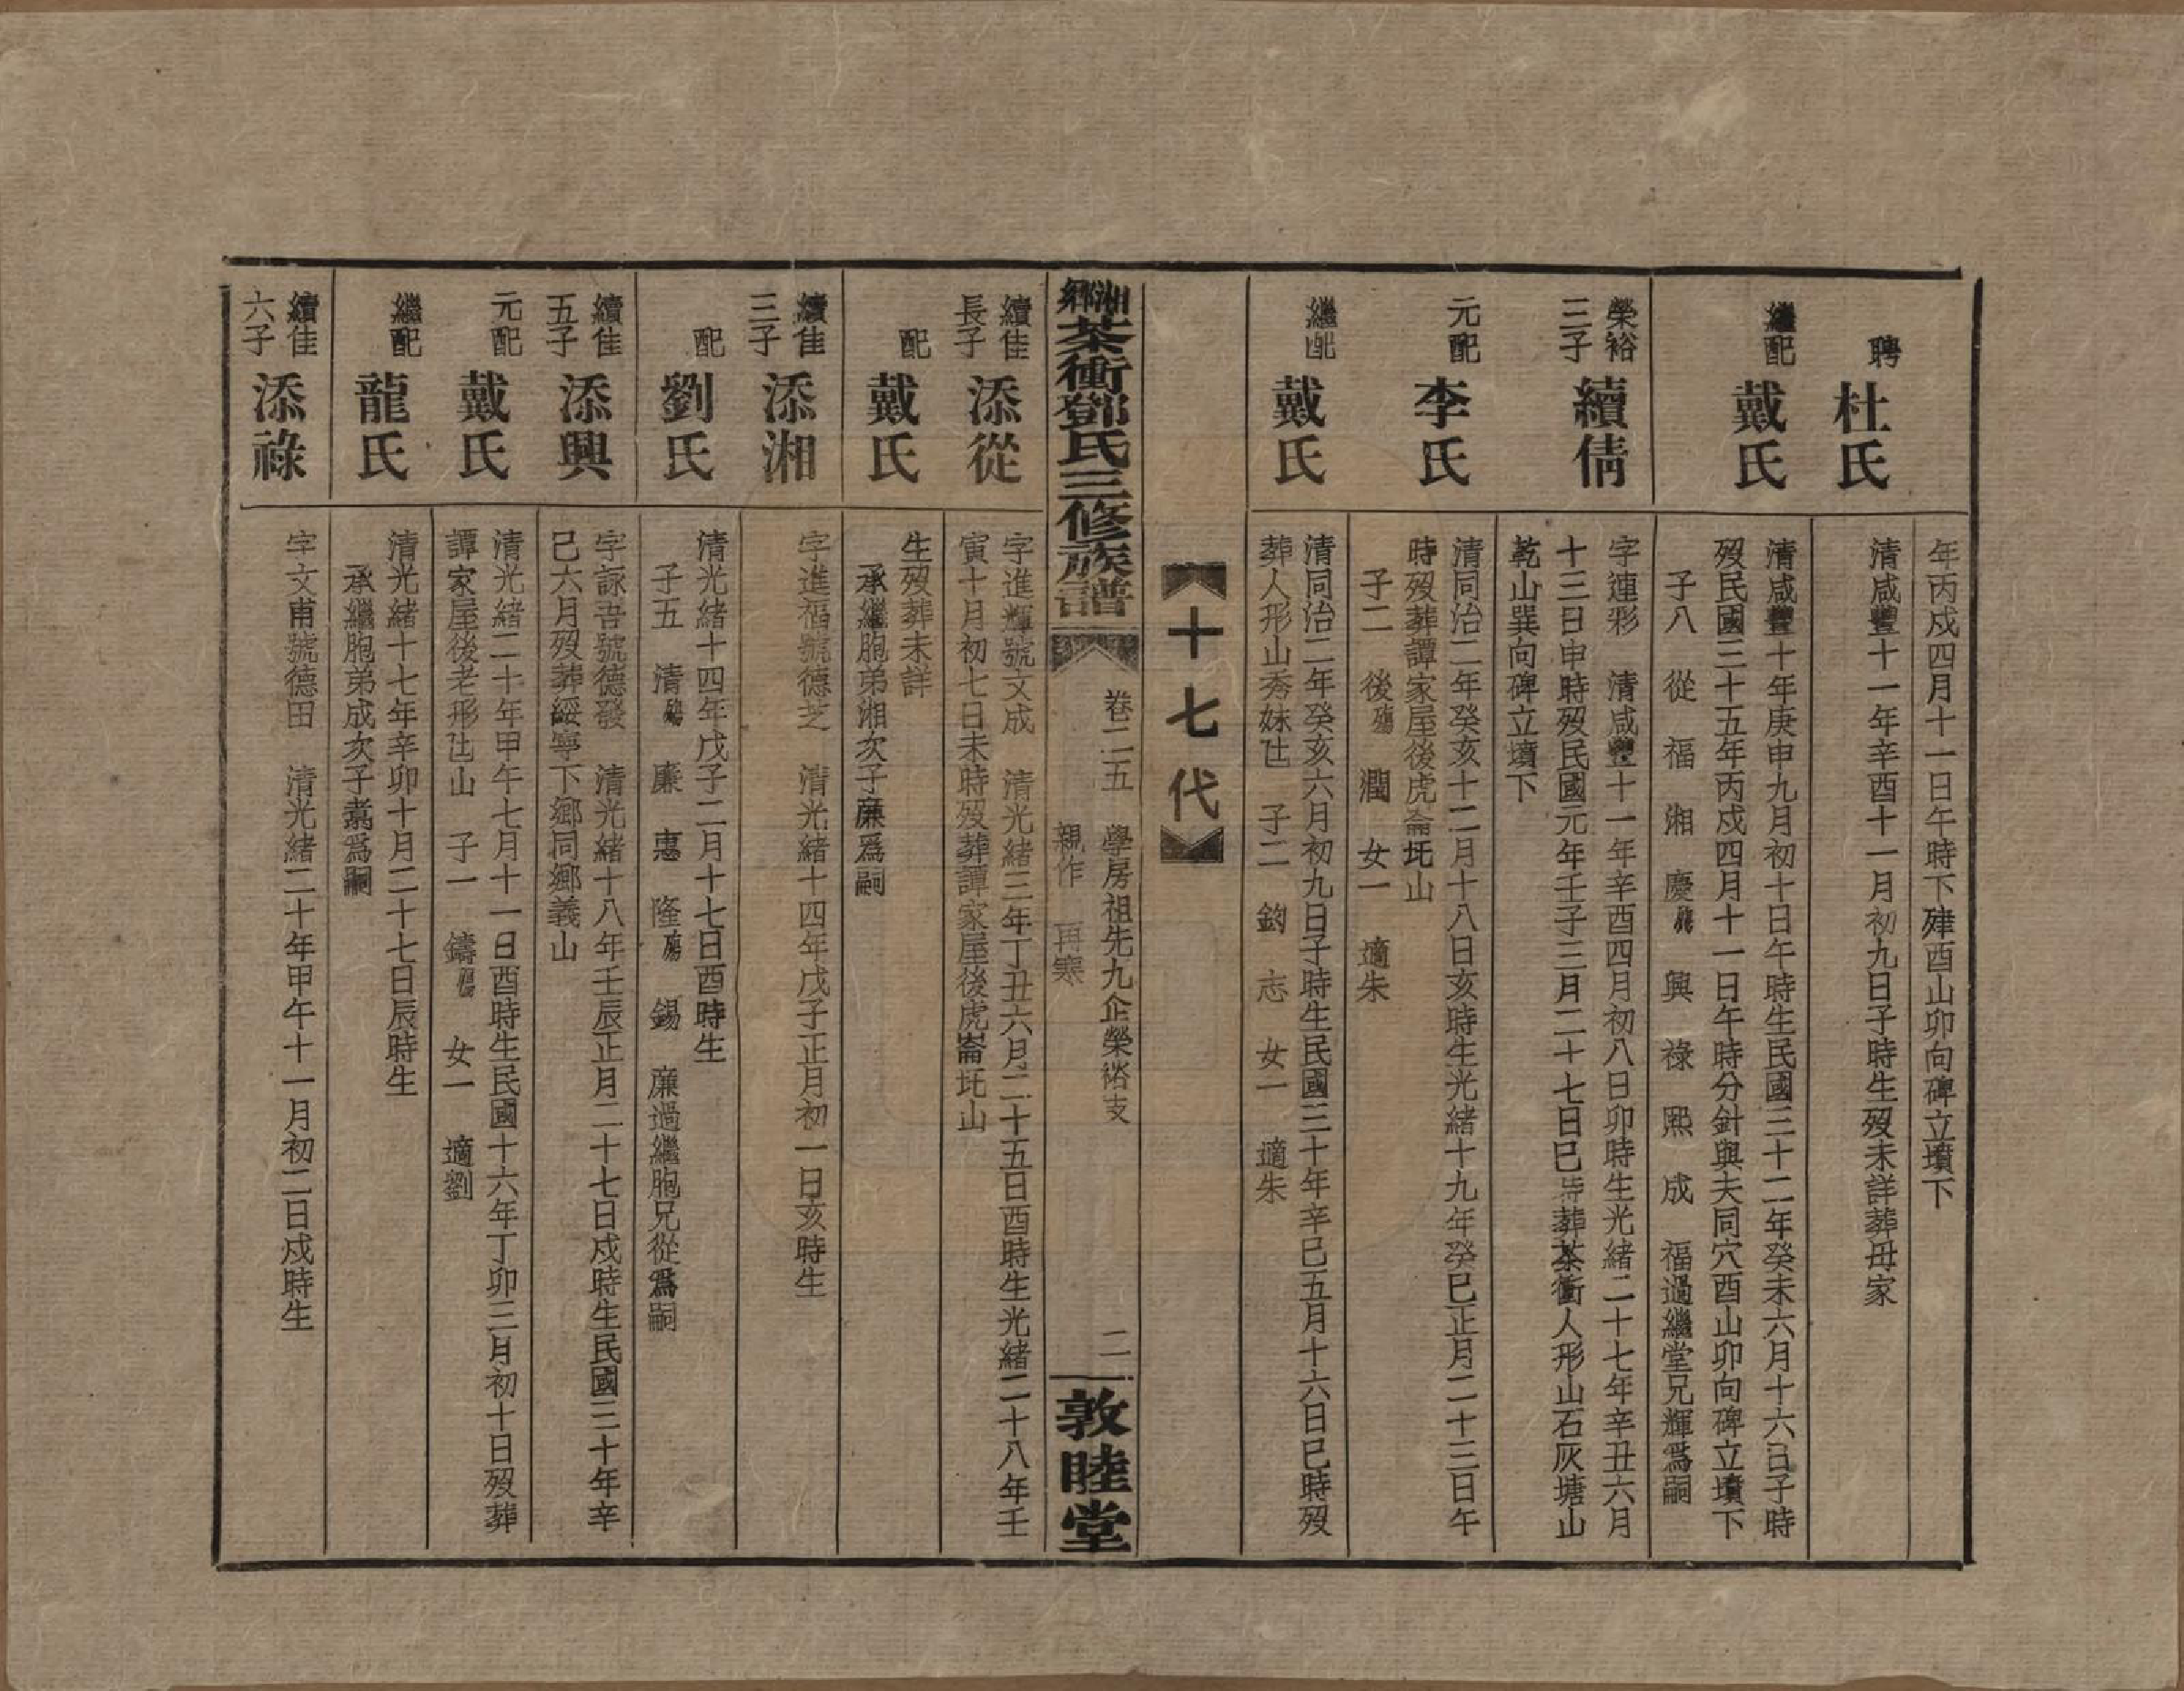 年丙戌四月十一日午時下肂酉山卯向碑立墳下
聘
杜氏
清咸豐十一年辛酉十一月初九日子時生歿未詳葬毋家
繼配
戴氏
清咸豐十年庚申九月初十日午時生民國三十二年癸未六月十六日子時
歿民國三十五年丙戌四月十一日午時分針與夫同穴酉山卯向碑立墳下
子八　從　福　湘　慶殤　興　祿　熙　成　福過繼堂兄輝爲嗣
榮裕
三子
續倩
字連彩　清咸豐十一年辛酉四月初八日卯時生光緒二十七年辛丑六月
十三日申時歿民國元年壬子三月二十七日巳時葬茶衝人形山石灰塘山
乾山巽向碑立墳下
元配
李氏
清同治二年癸亥十二月十八日亥時生光緒十九年癸巳正月二十三日午
時歿葬譚家屋後虎崙圫山
子二　後殤　潤　女一　適朱
繼配
戴氏
清同治二年癸亥六月初九日子時生民國三十年辛巳五月十六日巳時歿
葬人形山秀妹㘰　子二　鈞　志　女一　適朱
十七代
湘鄉茶衝鄧氏三修族譜
卷二五　學房祖先九企榮裕支
親作　再寒
二
敦睦堂
續佳
長子
添從
字進輝號文成　清光緒三年丁丑六月二十五日酉時生光緒二十八年壬
寅十月初七日未時歿葬譚家屋後虎崙圫山
配
戴氏
生歿葬未詳
承繼胞弟湘次子廉爲嗣
續佳
三子
添湘
字進福號德芝　清光緒十四年戊子正月初一日亥時生
配
劉氏
清光緒十四年戊子二月十七日酉時生
子五　清殤　廉　惠　隆殤　錫　廉過繼胞兄從爲嗣
續佳
五子
添興
字詠吾號德發　清光緒十八年壬辰正月二十七日戌時生民國三十年辛
巳六月歿葬綏寧下鄉同鄉義山
元配
戴氏
清光緒二十年甲午七月十一日酉時生民國十六年丁卯三月初十日歿葬
譚家屋後老形㘰山　子一　鑄殤　女一　適劉
繼配
龍氏
清光緒十七年辛卯十月二十七日辰時生
承繼胞弟成次子燾爲嗣
續佳
六子
添祿
字文甫號德田　清光緒二十年甲午十一月初二日戌時生